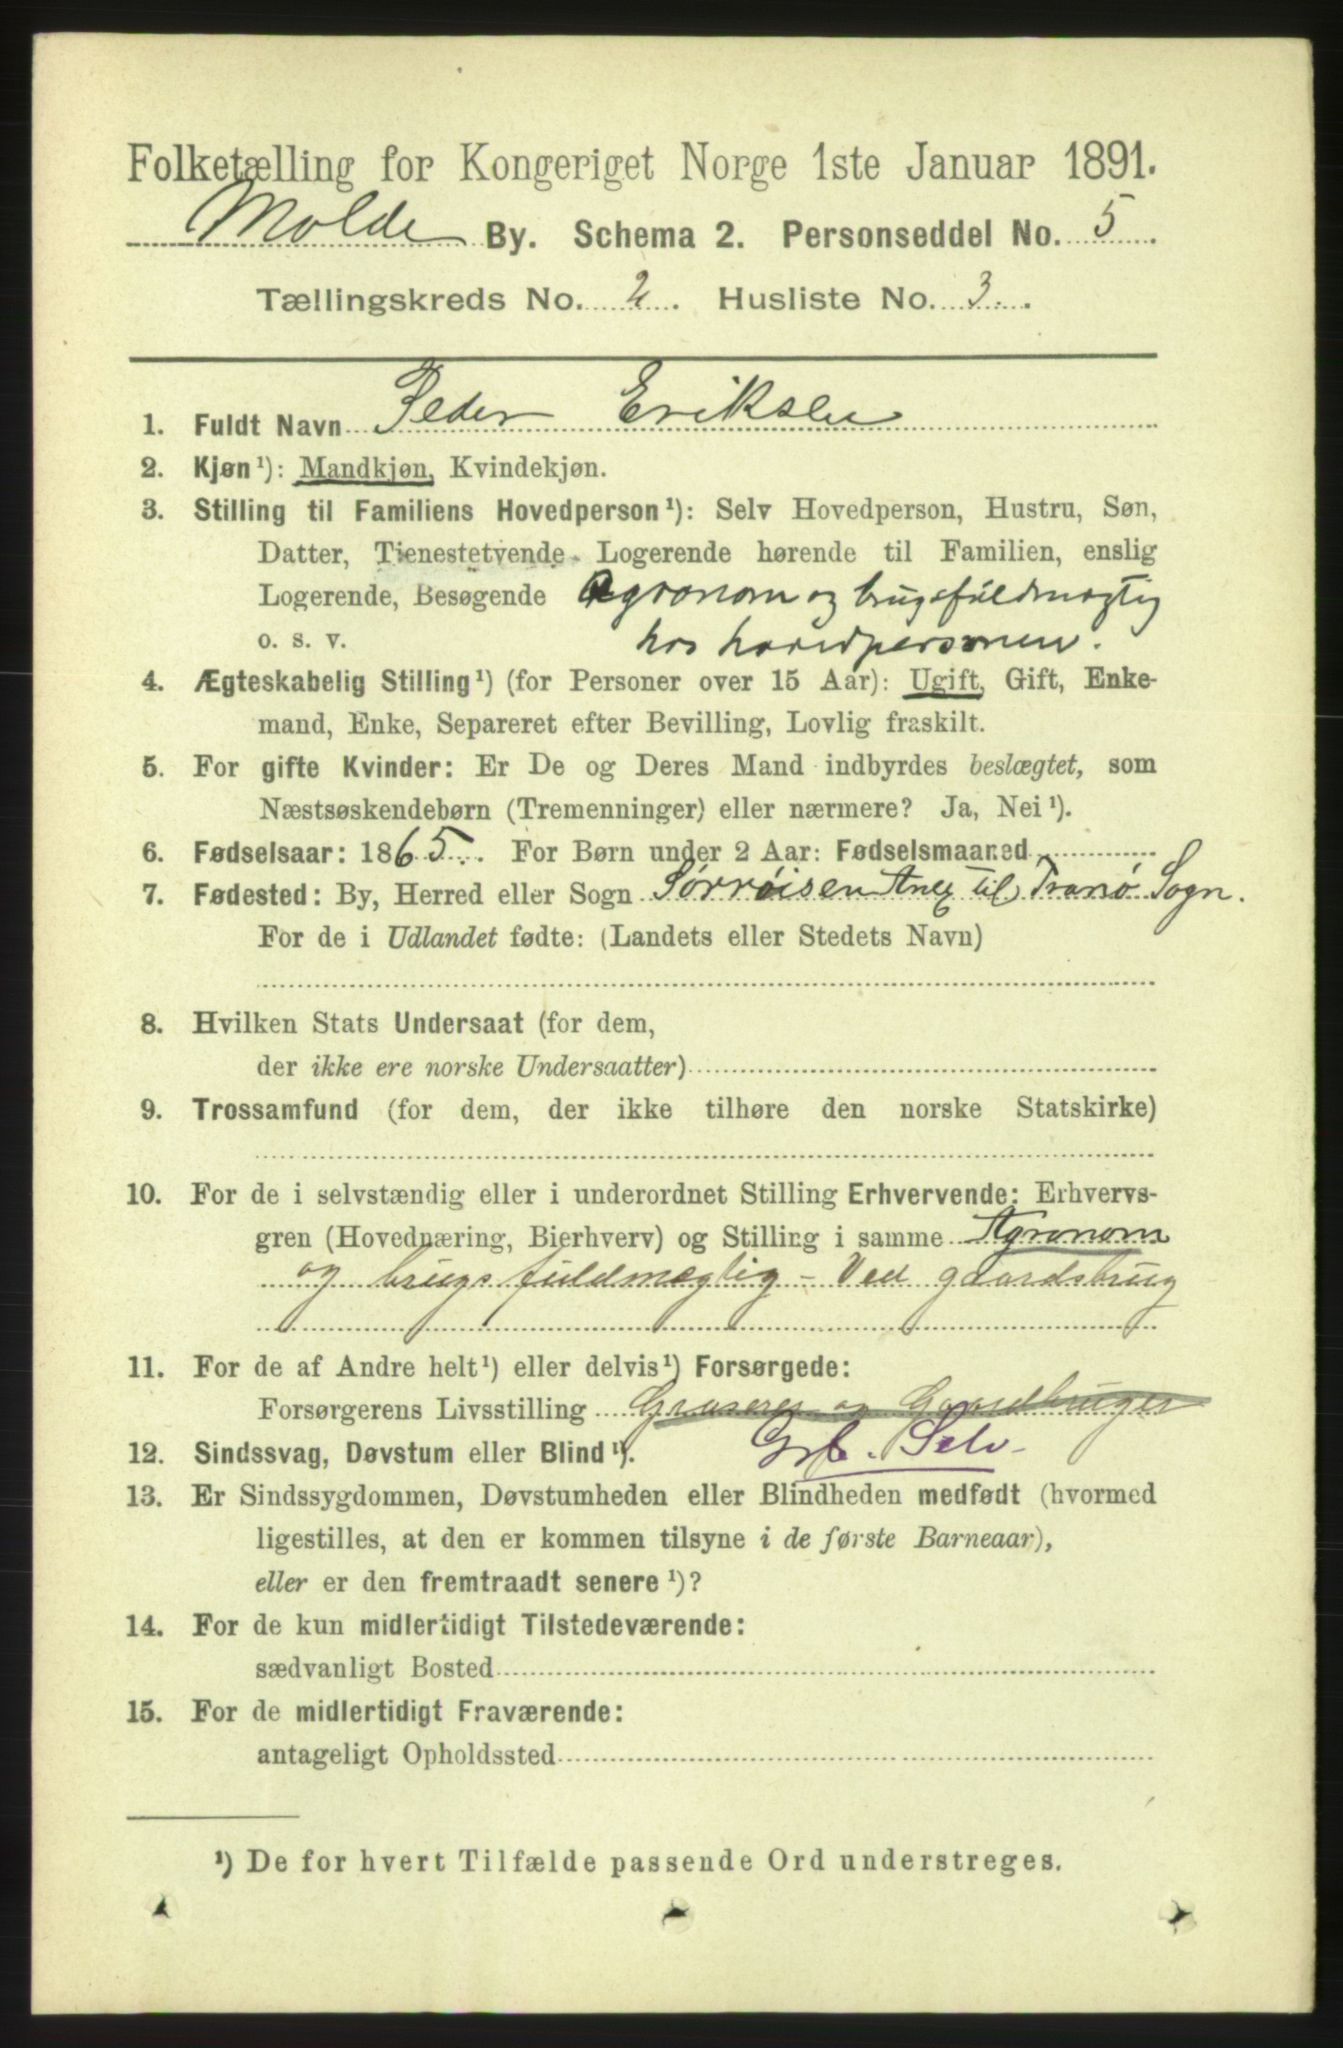 Folketælling for Kongeriget Norge 1ste Januar 1891.
Molde By. Schema 2. Personseddel No. 5.
Tællingskreds No. 2. Husliste No. 3.
1. Fuldt Navn Peder Eriksen
2. Kjøn¹): Mandkjøn, Kvindekjøn.
3. Stilling til Familiens Hovedperson¹): Selv Hovedperson, Hustru, Søn,
Datter, Tjenestetyende, Logerende hørende til Familien, enslig
Logerende, Besøgende Agronom og brugsfuldmægtig
o. s. v. hos hovedpersonen.
4. Ægteskabelig Stilling¹) (for Personer over 15 Aar): Ugift, Gift, Enke-
mand, Enke, Separeret efter Bevilling, Lovlig fraskilt.
5. For gifte Kvinder: Er De og Deres Mand indbyrdes beslægtet, som
Næstsøskendebørn (Tremenninger) eller nærmere? Ja, Nei¹).
6. Fødselsaar: 1865. For Børn under 2 Aar: Fødselsmaaned
7. Fødested: By, Herred eller Sogn Sørrøisen Anex til Tranø Sogn.
For de i Udlandet fødte: (Landets eller Stedets Navn)
8. Hvilken Stats Undersaat (for dem,
der ikke ere norske Undersaatter)
9. Trossamfund (for dem, der ikke tilhøre den norske Statskirke)
10. For de i selvstændig eller i underordnet Stilling Erhvervende: Erhvervs-
gren (Hovednæring, Bierhverv) og Stilling i samme Agronom
og brugsfuldmægtig - Ved gaardsbrug
11. For de af Andre helt¹) eller delvis¹) Forsørgede:
Forsørgerens Livsstilling Groserer og Gaardbruger
12. Sindssvag, Døvstum eller Blind¹). Grb. Selv
13. Er Sindssygdommen, Døvstumheden eller Blindheden medfødt (hvormed
ligestilles, at den er kommen tilsyne i de første Barneaar),
eller er den fremtraadt senere¹)?
14. For de kun midlertidigt Tilstedeværende:
sædvanligt Bosted
15. For de midlertidigt Fraværende:
antageligt Opholdssted
¹) De for hvert Tilfælde passende Ord understreges.